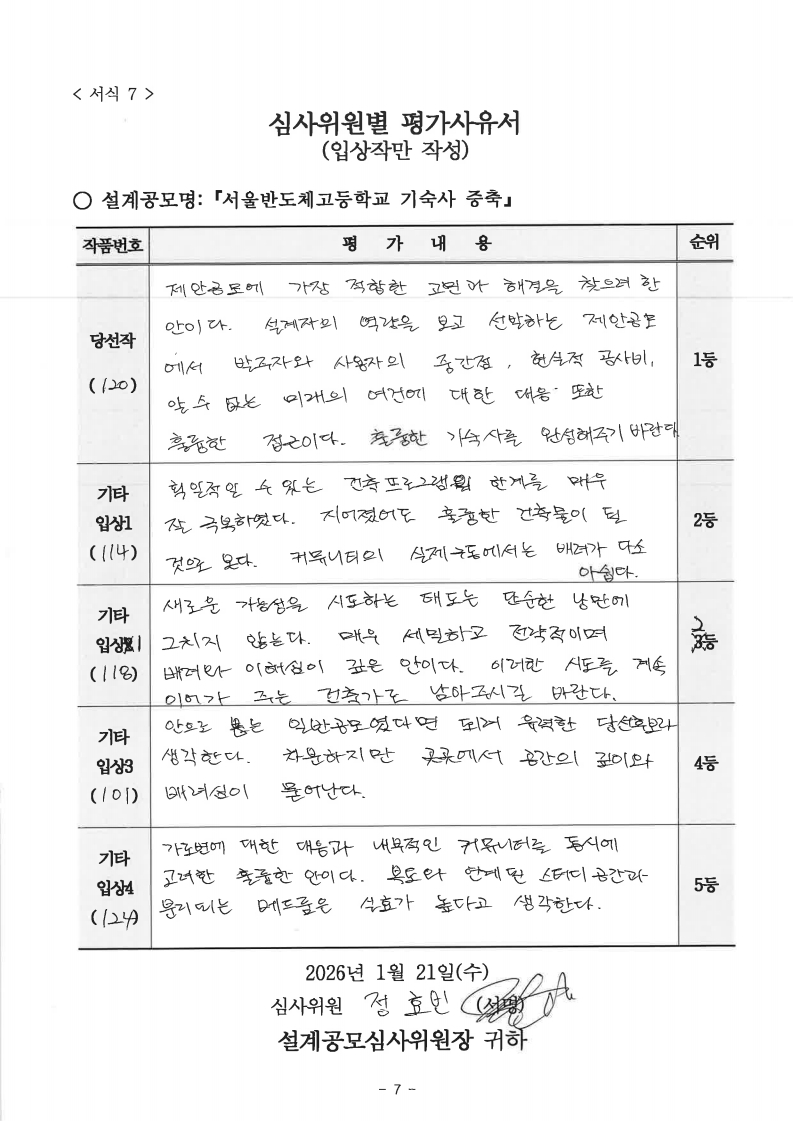 < 서식 7 >
심사위원별 평가사유서
(입상작만 작성)
○ 설계공모명: 『서울반도체고등학교 기숙사 증축』
작품번호 평 가 내 용 순위
당선작
(120)
제안공모에 가장 적합한 고민과 해결을 찾으려 한
안이다. 설계자의 역량을 보고 선발하는 제안공모
에서 발주자와 사용자의 중간점, 현실적 공사비,
알 수 없는 미래의 여건에 대한 대응 또한
훌륭한 접근이다. 훌륭한 기숙사를 완성해주기 바란다
1등
기타
입상1
(114)
획일적일 수 있는 건축프로그램의 한계를 매우
잘 극복하였다. 지어졌어도 훌륭한 건축물이 될
것으로 본다. 커뮤니티의 실제 구동에서는 배려가 다소
아쉽다.
2등
기타
입상1
(118)
새로운 가능성을 시도하는 태도는 단순한 낭만에
그치지 않는다. 매우 세밀하고 전략적이며
배려와 이해심이 깊은 안이다. 이러한 시도를 계속
이어가 주는 건축가로 남아주시길 바란다.
2등
기타
입상3
(101)
안으로 는 일반공모였다면 되려 유력한 당선후보라
생각한다. 차분하지만 곳곳에서 공간의 깊이와
배려심이 묻어난다.
4등
기타
입상4
(124)
가로변에 대한 대응과 내부적인 커뮤니티를 동시에
고려한 훌륭한 안이다. 복도와 연계된 스터디 공간과
분리되는 베드룸은 실효가 높다고 생각한다.
5등
2026년 1월 21일(수)
심사위원 정효빈 (서명)
설계공모심사위원장 귀하
- 7 -